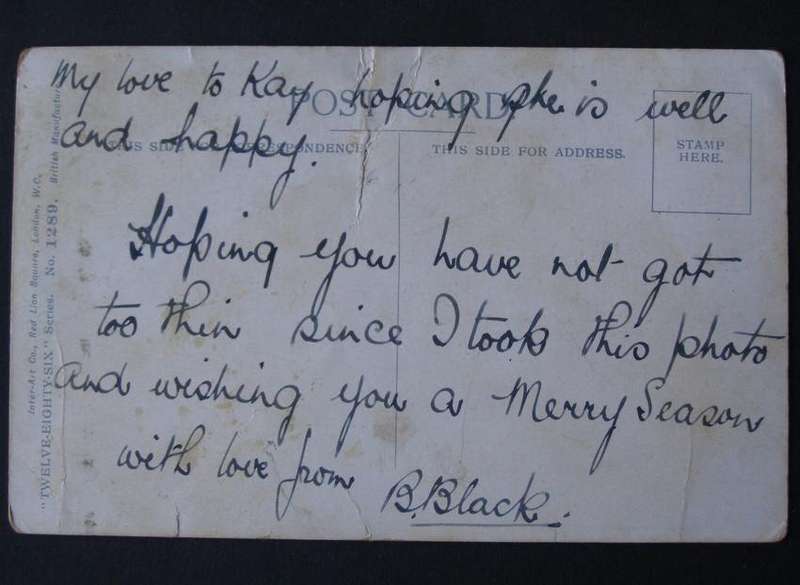 My love to Kay hoping she is well
and happy.
POST CARD
THIS SIDE CORRESPONDENCE
THIS SIDE FOR ADDRESS.
STAMP
HERE.
Hoping you have not got
too thin since I took this photo
and wishing you a Merry Season
with love from
B. Black.
Inter-Art Co., Red Lion Square, London, W.C.
"TWELVE-EIGHTY-SIX" Series. No. 1289. British Manufacture